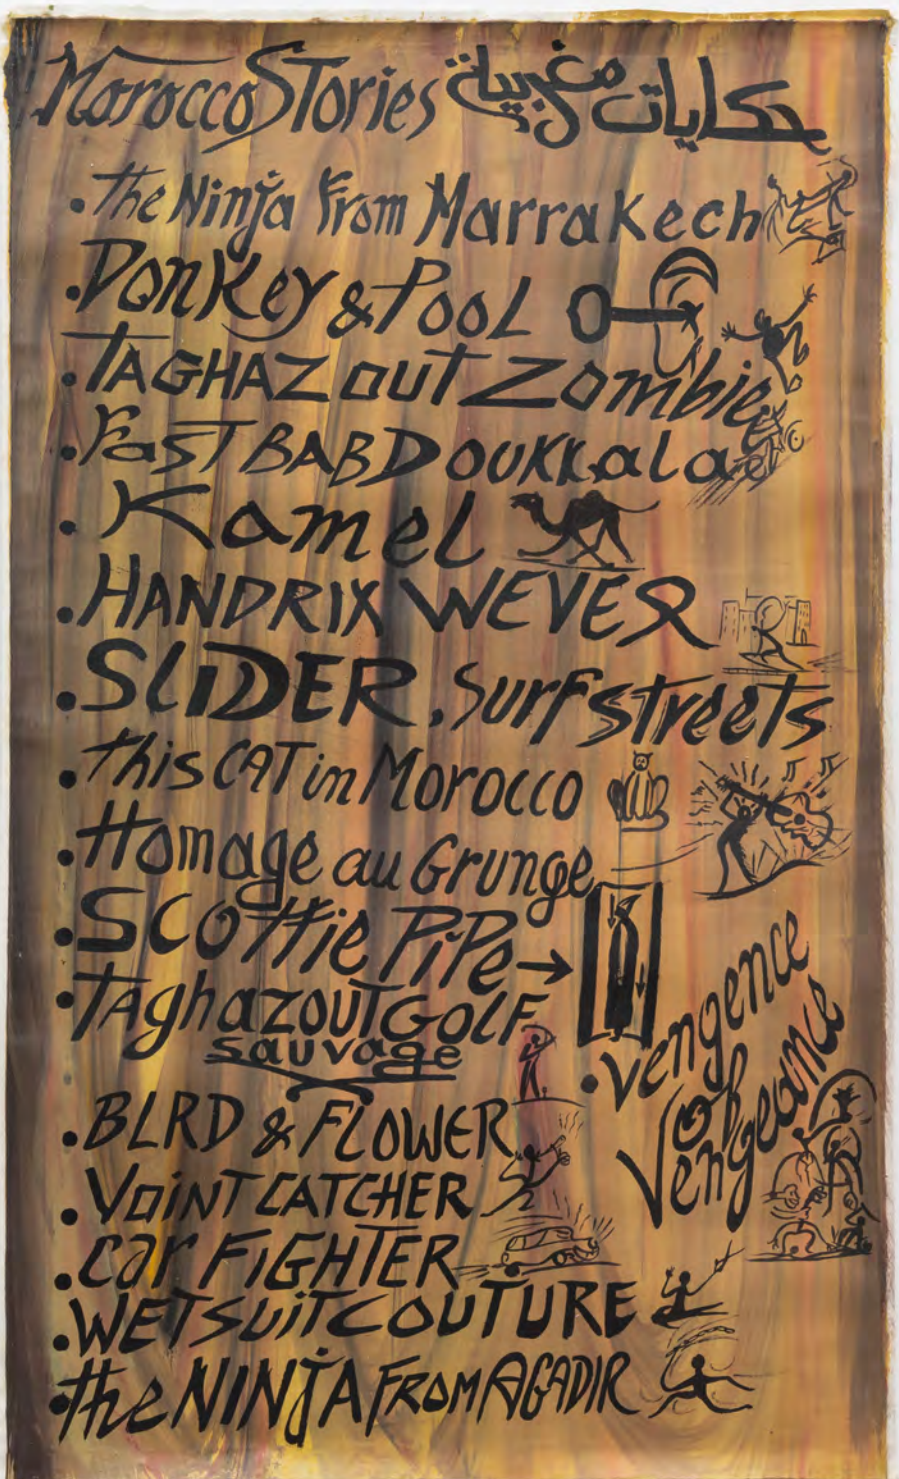 Marocco Stories حكايات مغربية
• the Ninja From Marrakech
• Donkey & Pool
• TAGHAZOUT Zombie
• FasT BAB DOUKKala
• Kamel
• HANDRIX WEVER
• SLiDER, Surf streets
• this CAT in Morocco
• Homage au Grunge
• SCottie PiPe →
• TAghazouT GOLF
sauvage
• vengence
oh
Vengeance
• BLRD & FLOWER
• VoiNT CATCHER
• Car FiGHTER
• WETSUiT COUTURE
• the NINjA FROM AGADIR